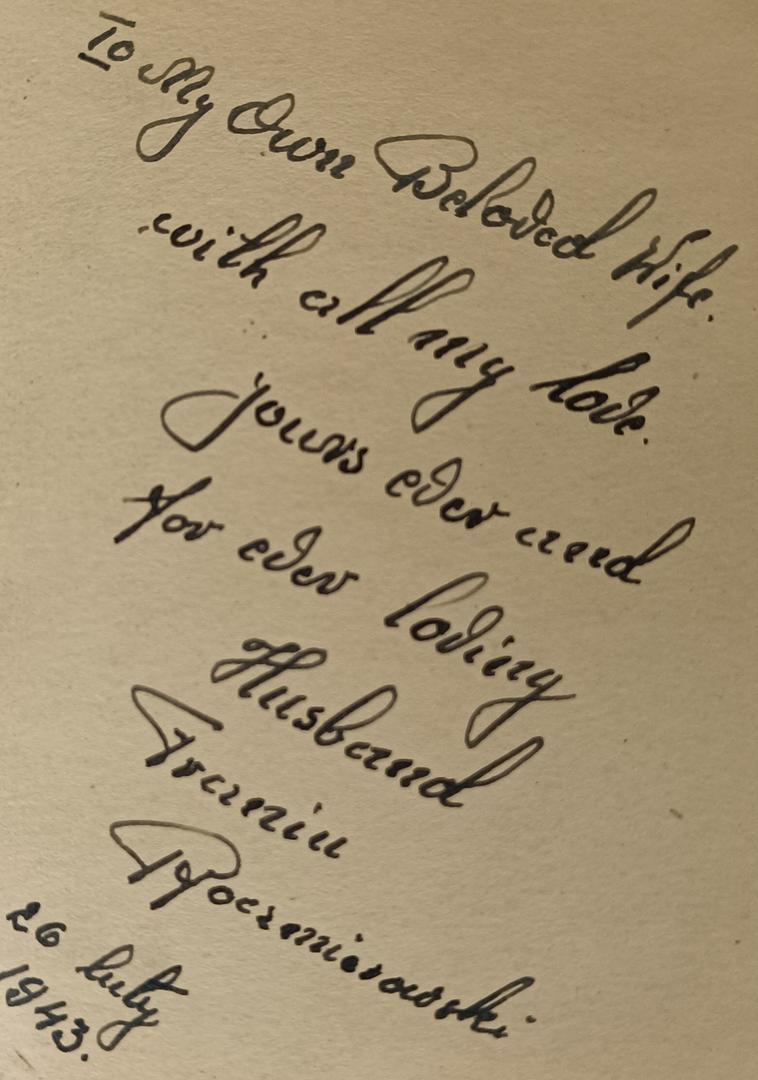 To My Own Beloved Wife.
with all my love.
yours ever and
for ever loving
Husband
26 luty
1943.